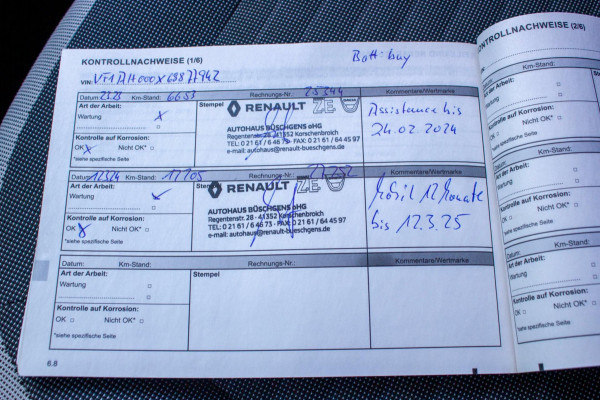 KONTROLLNACHWEISE (1/6)
VIN:
Datum: Km-Stand: 6657 Rechnungs-Nr.: 25344 Kommentare/Wertmarke
Art der Arbeit:
Wartung X
Kontrolle auf Korrosion:
OK X Nicht OK*
*siehe spezifische Seite
Stempel
RENAULT ZE DACIA
AUTOHAUS BÜSCHGENS oHG
Regentenstr. 28 - 41352 Korschenbroich
TEL: 0 21 61 / 64 46 73 - FAX: 0 21 61 / 64 45 97
e-mail: autohaus@renault-bueschgens.de
Assistance bis
24.02.2024
Datum: Km-Stand: 11705 Rechnungs-Nr.: Kommentare/Wertmarke
Art der Arbeit:
Wartung
Kontrolle auf Korrosion:
OK Nicht OK*
*siehe spezifische Seite
Stempel
RENAULT ZE
AUTOHAUS BÜSCHGENS oHG
Regentenstr. 28 - 41352 Korschenbroich
TEL: 0 21 61 / 64 46 73 - FAX: 0 21 61 / 64 45 97
e-mail: autohaus@renault-bueschgens.de
Mobil 12 Monate
bis 12.3.25
Datum: Km-Stand: Rechnungs-Nr.: Kommentare/Wertmarke
Art der Arbeit:
Wartung
Kontrolle auf Korrosion:
OK Nicht OK*
*siehe spezifische Seite
Stempel
6.8
KONTROLLNACHWEISE (2/6)
VIN:
Datum:
Art der Arbeit:
Wartung
Kontrolle auf Korrosion:
OK Nicht OK*
*siehe spezifische Seite
Datum:
Art der Arbeit:
Wartung
Kontrolle auf Korrosion:
OK Nicht OK*
*siehe spezifische Seite
Datum:
Art der Arbeit:
Wartung
Kontrolle auf Korrosion:
OK Nicht OK*
*siehe spezifische Seite